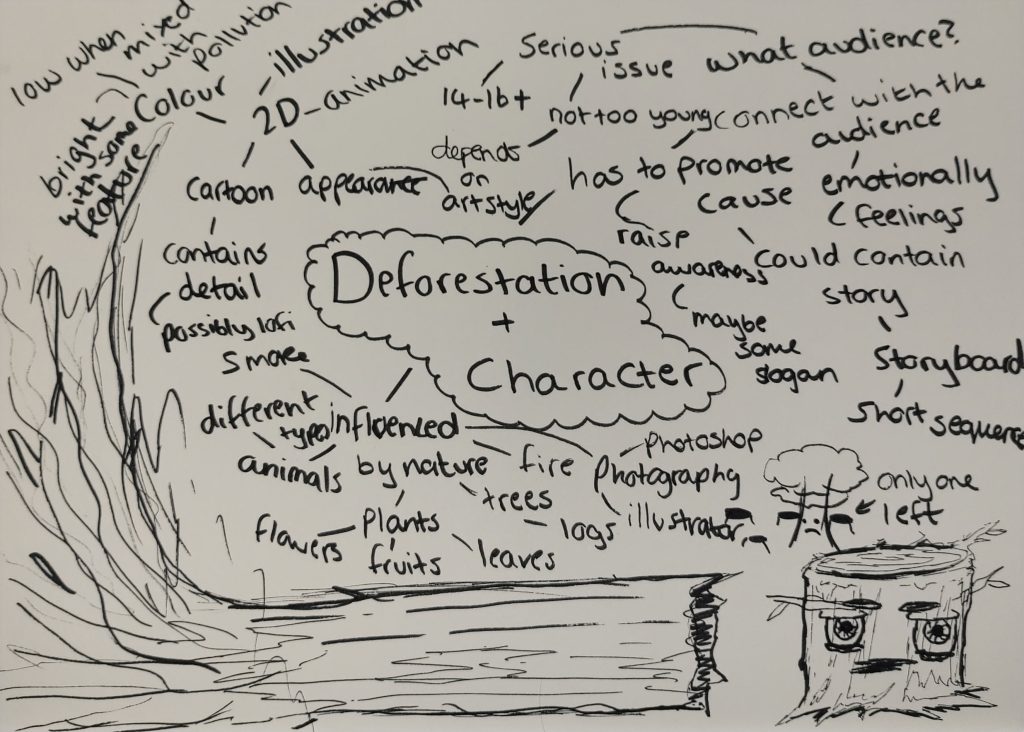 low when
mixed
with
pollution
bright
with some
feature
Colour
illustration
2D-animation
Cartoon
appearance
contains
detail
possibly lofi
Serious
issue
what audience?
14-16+
not too young
depends
on
art style
connect with the
audience
emotionally
feelings
has to promote
cause
raise
awareness
maybe
some
slogan
could contain
story
Storyboard
Short sequence
Deforestation
+
Character
smoke
different
types
influenced
animals
by nature
fire
trees
logs
flowers
plants
fruits
leaves
photoshop
photography
illustrator
only one
left